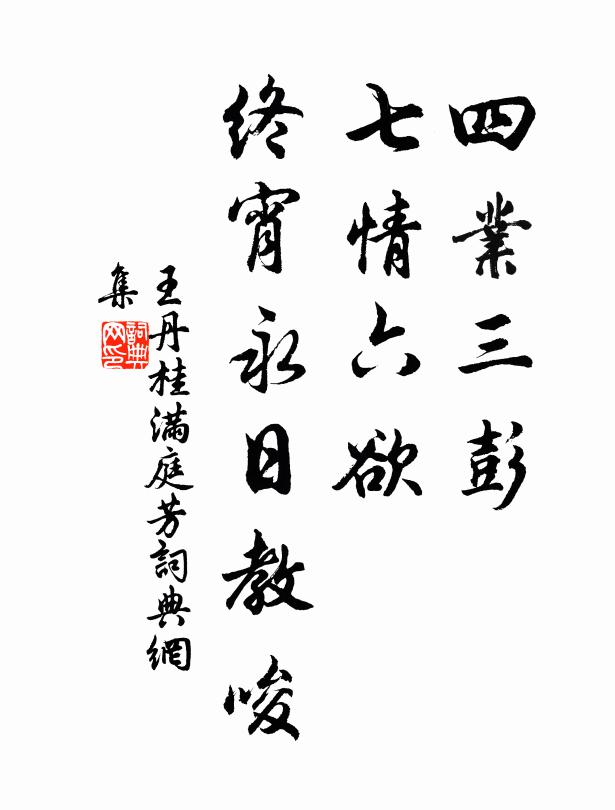 四業三彭
七情六欲
終宵永日教唆
王丹桂滿庭芳詞典網
集
詞典網印